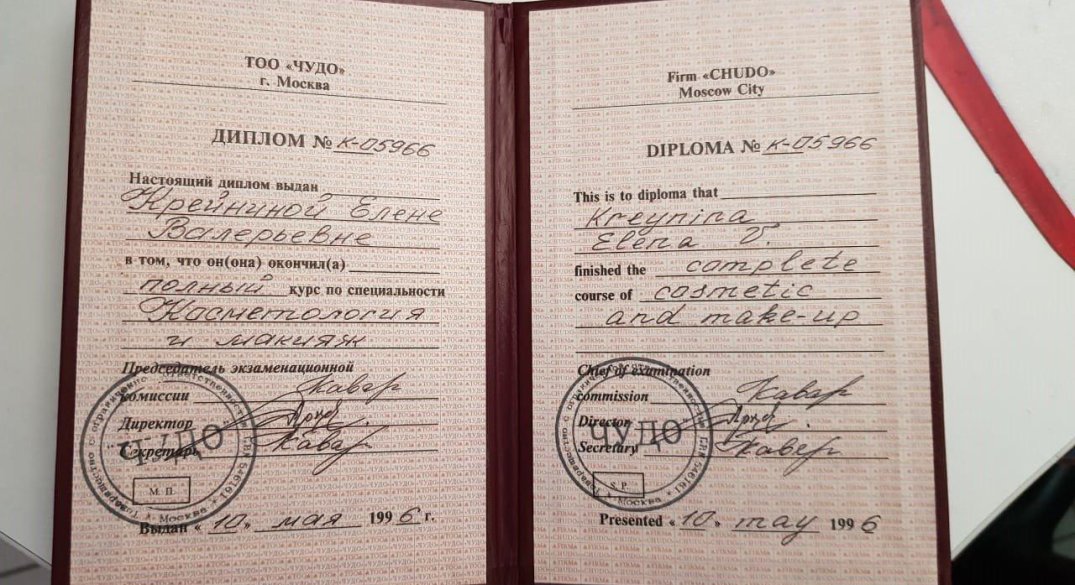 ТОО «ЧУДО»
г. Москва
ДИПЛОМ № К-05966
Настоящий диплом выдан
Крейниной Елене
Валерьевне
в том, что он(она) окончил(а)
полный курс по специальности
Косметология
и макияж
Председатель экзаменационной
комиссии
Директор
Секретарь
ЧУДО
М. П.
Выдан « 10 » мая 1996 г.
Firm «CHUDO»
Moscow City
DIPLOMA № K-05966
This is to diploma that
Kreynina
Elena V.
finished the complete
course of cosmetic
and make-up
Chief of examination
commission
Director
Secretary
ЧУДО
S.P.
Presented « 10 » may 1996